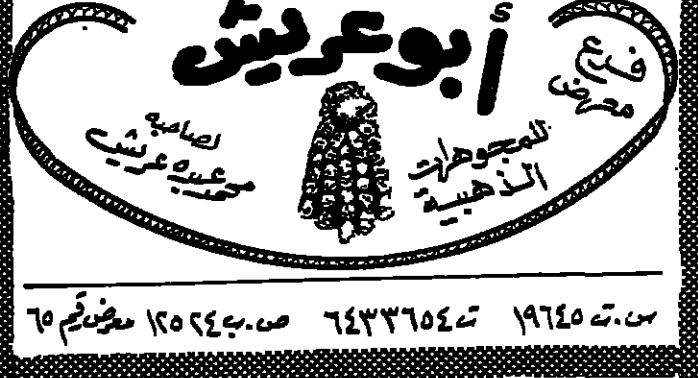 فرع
معرض
أبو عريش
للمجوهرات
الذهبية
لصاحبه
محمد عبده عريش
س.ت ١٩٦٤٥ ت ٦٤٣٣٦٥٤ ص.ب ١٢٥٢٤ معرض رقم ٦٥